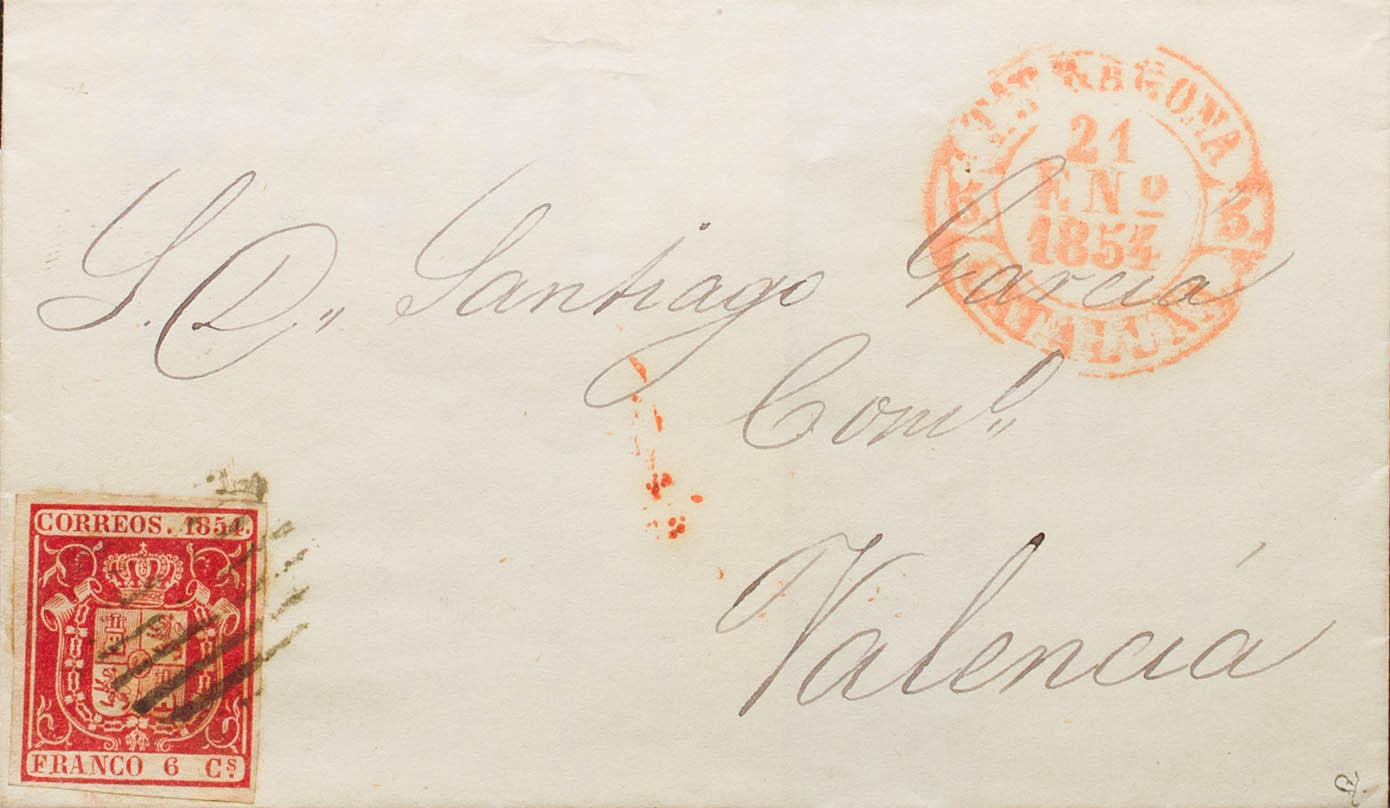 TARRAGONA
21
ENº
1854
5 5
CATALUÑA
S. D., Santiago García
Comº,,
Valencia
CORREOS. 1854.
FRANCO 6 Cs